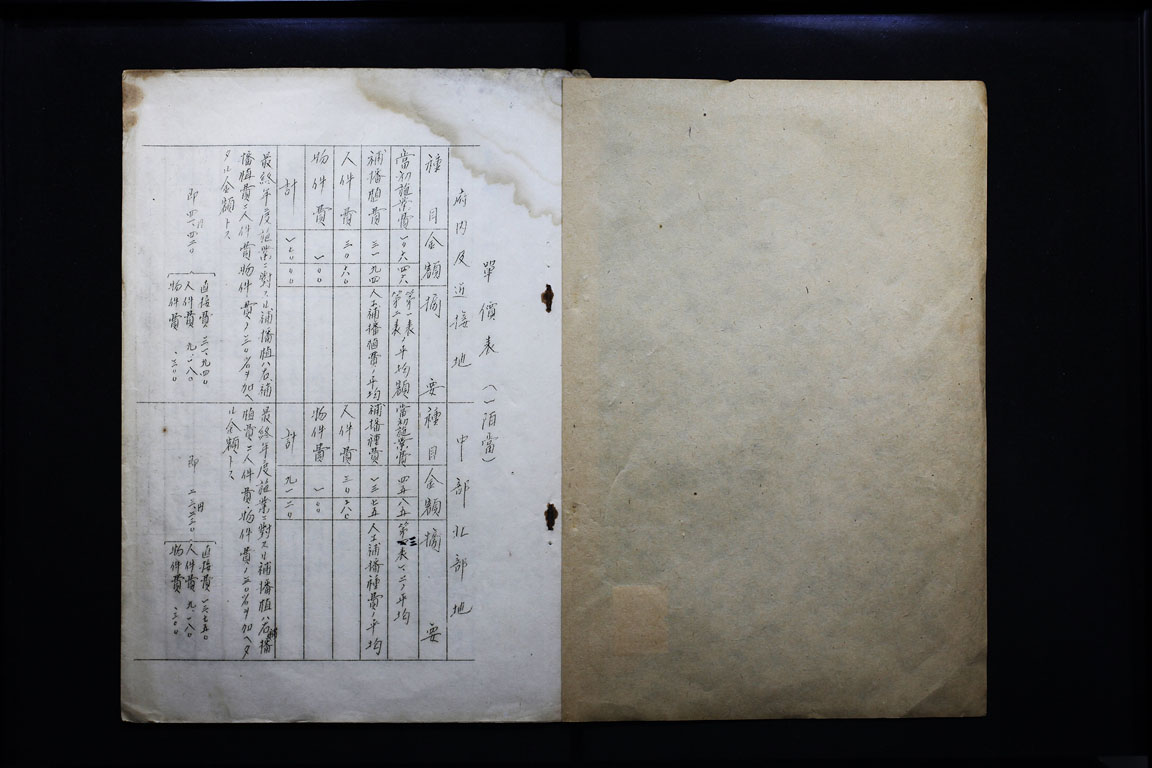 單價表（一陌當）
府內及近接地
種目 金額 摘要
當初施業費 一〇六 四六 第一表、第二表ノ平均額
補播植費 三一 九四 人工補播植費ノ平均
人件費 三〇 六〇
物件費 一 〇〇
計 一七〇 〇〇
最終年度施業ニ對スル補播植ハ右補
播植費ニ人件費物件費ノ三〇%ヲ加ヘ
タル金額トス
即 四一、四二〇円
直接費 三一、九四〇
人件費 九、一八〇
物件費 、三〇〇
中部北部地
種目 金額 摘要
當初施業費 四五 八五 第三表一、二ノ平均
補播種費 一三 七五 人工補播種費ノ平均
人件費 三〇 六〇
物件費 一 〇〇
計 九一 二〇
最終年度施業ニ對スル補播植ハ右補播
植費ニ人件費物件費ノ三〇%ヲ加ヘタ
ル金額トス
即
直接費
人件費 九、一八〇
物件費 、三〇〇